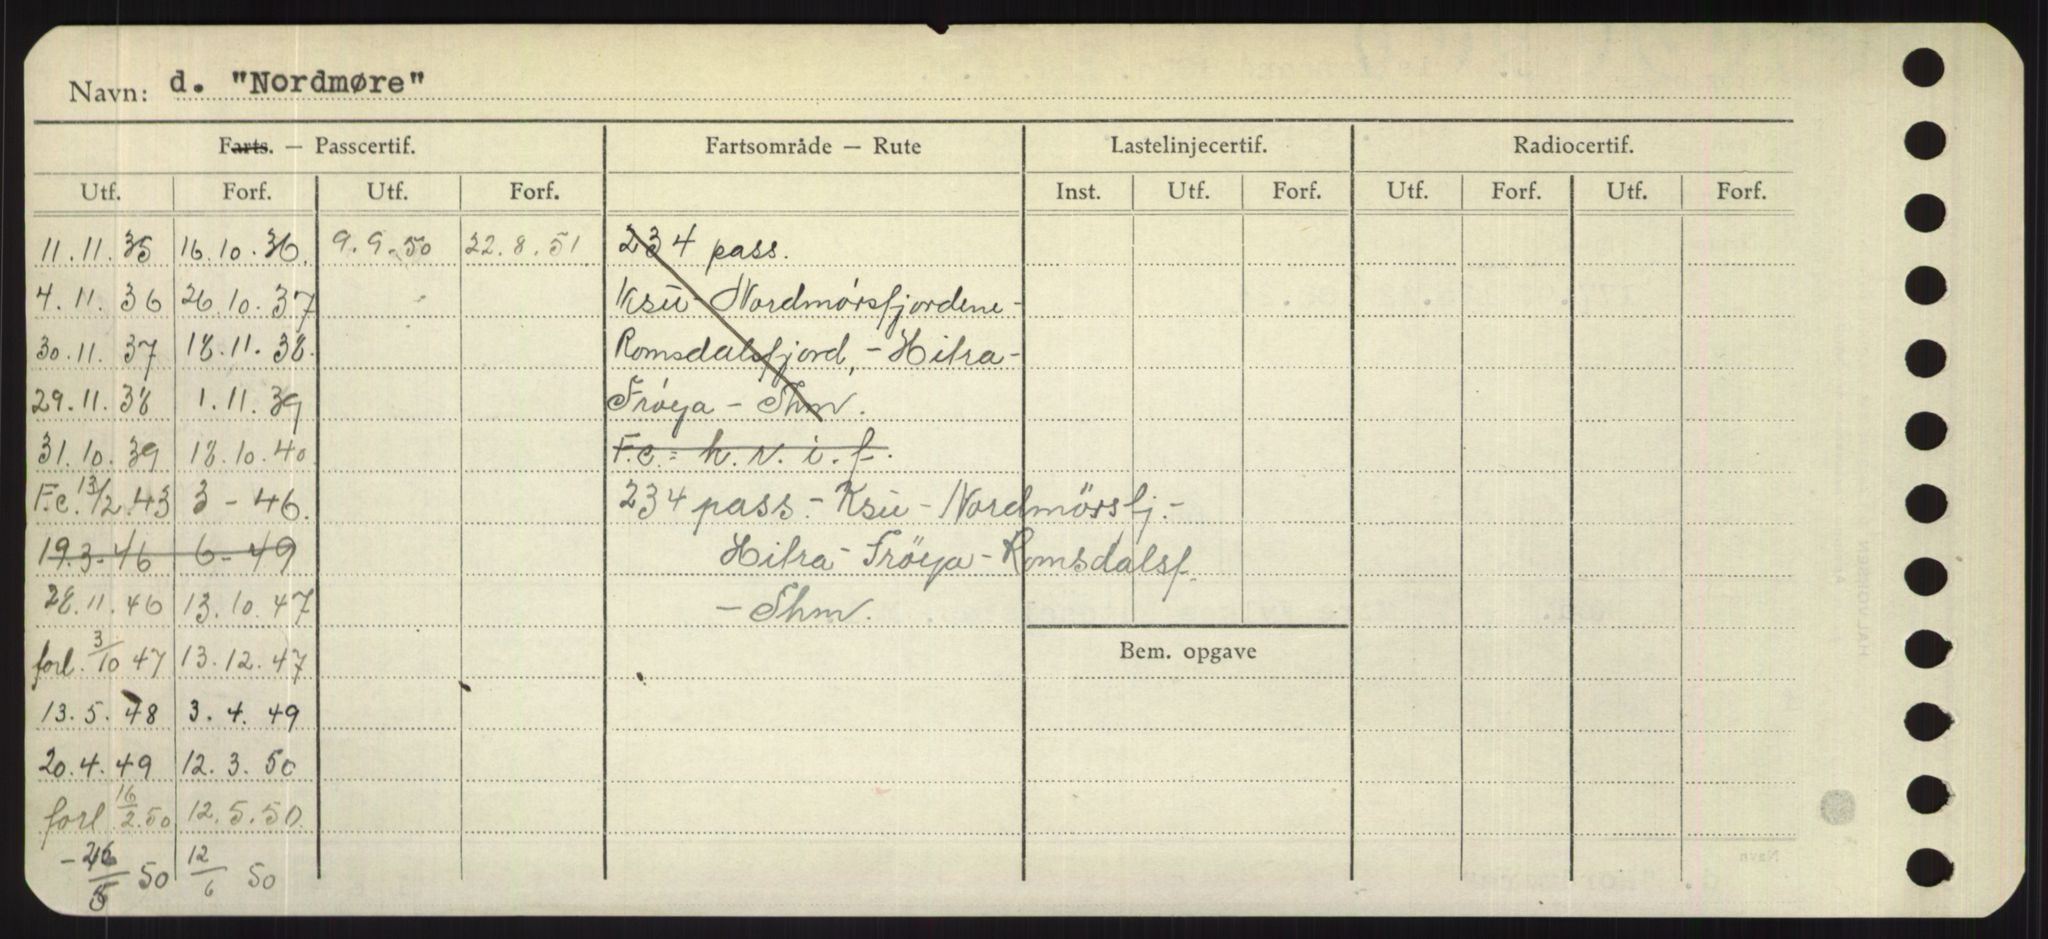 Navn: d. "Nordmøre"
Farts. — Passcertif. Fartsområde — Rute Lastelinjecertif. Radiocertif.
Utf. Forf. Utf. Forf. Inst. Utf. Forf. Utf. Forf. Utf. Forf.
11.11.35 16.10.36. 9.9.50 22.8.51 234 pass.
4.11.36 26.10.37 Ksu - Nordmørsfjordene -
30.11.37 18.11.38. Romsdalsfjord, - Hitra -
29.11.38 1.11.39 Frøya - Thm.
31.10.39 18.10.40 F.c. = h.v.i.f.
F.c. 13/2.43 3 - 46. 234 pass. - Ksu - Nordmörsfj. -
19.3-46 6 - 49 Hitra - Fröya - Romsdalsf.
28.11.46 13.10.47 - Thm.
forl. 3/10 47 13.12.47 Bem. opgave
13.5.48 3.4.49
20.4.49 12.3.50
forl 16/2.50 12.5.50
- 26/5 50 12/6 50